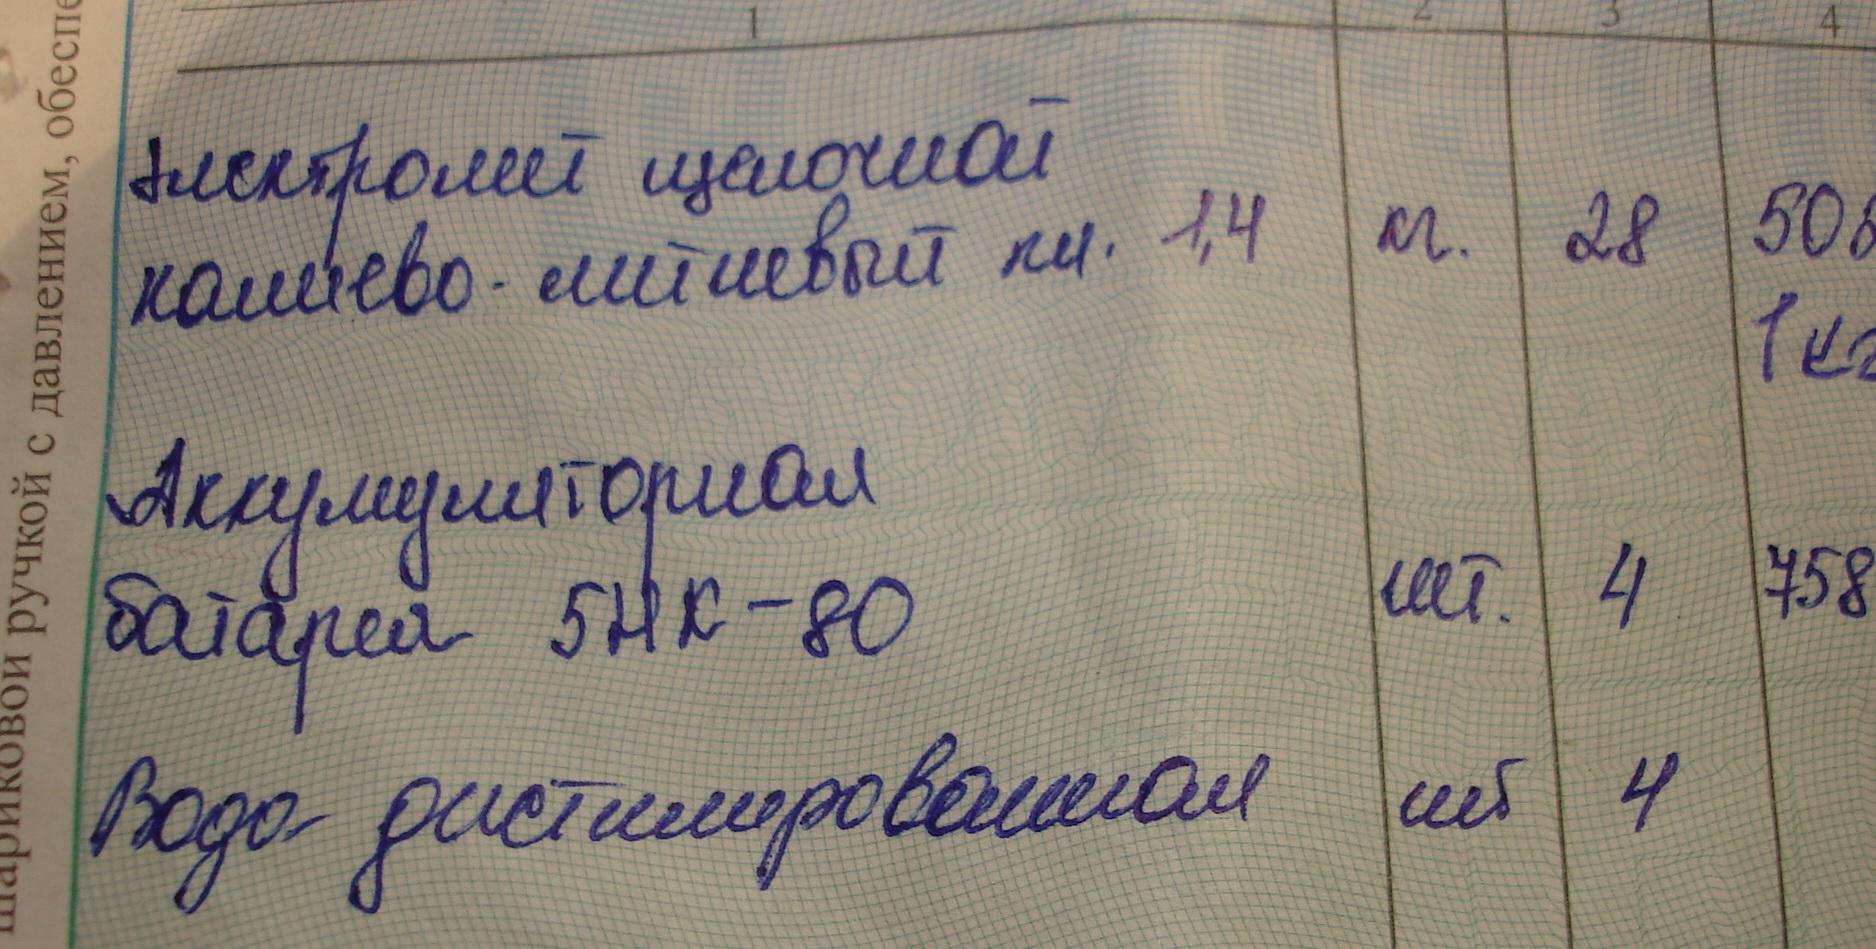 1 2 3 4
Электролит щелочной
калиево-литиевый пл. 1,4 кг. 28 50
1 кг
Аккумуляторная
батарея 5НК-80 шт. 4 758
Вода дистилированная шт 4
шариковой ручкой с давлением, обеспе